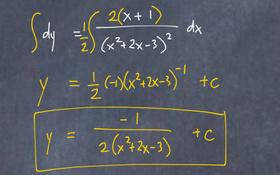 ∫ dy = 1/2 ∫ 2(x + 1) / (x² + 2x - 3)² dx
y = 1/2 (-1)(x² + 2x - 3)⁻¹ + c
y = -1 / 2(x² + 2x - 3) + c